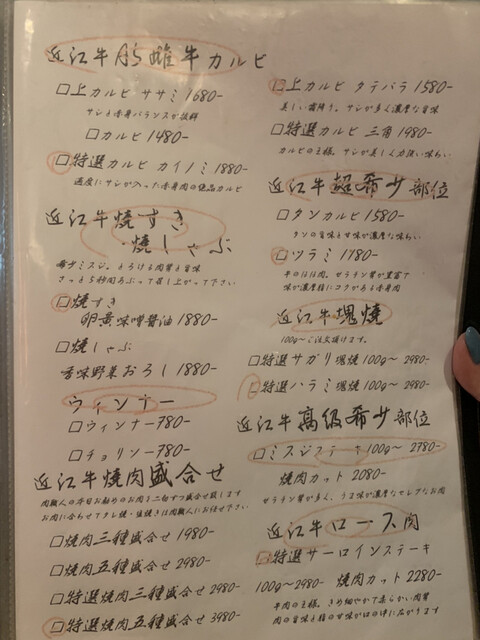 近江牛 雌牛カルビ
□上カルビ ササミ 1680-
サシと赤身バランスが抜群
□カルビ 1480-
□特選カルビ カイノミ 1880-
適度にサシが入った赤身肉の絶品カルビ
近江牛焼すき
・焼しゃぶ
希少ミスジ。とろける肉質と旨味
さっと5秒間あぶって召し上がって下さい
□焼すき
卵黄味噌醤油 1880-
□焼しゃぶ
香味野菜おろし 1880-
ウィンナー
□ウィンナー 780-
□チョリソー 780-
近江牛焼肉盛合せ
肉職人の本日お勧めのお肉を二切ずつ盛合せ致します
お肉に合わせてタレ焼・塩焼きは肉職人にお任せ下さい
□焼肉三種盛合せ 1980-
□焼肉五種盛合せ 2980-
□特選焼肉三種盛合せ 2980-
□特選焼肉五種盛合せ 3980-
□上カルビ タテバラ 1580-
美しい霜降り。サシが多く濃厚な旨味
□特選カルビ 三角 1980-
カルビの王様。サシが美しく力強い味わい
近江牛超希少部位
□タンカルビ 1580-
タンの旨味と甘味が濃厚な味わい
□ツラミ 1180-
牛のほほ肉。ゼラチン質が豊富で
味が濃厚格にコクがある赤身肉
近江牛塊焼
100g〜ご注文頂けます。
□特選サガリ塊焼 100g〜 2980-
□特選ハラミ塊焼 100g〜 2980-
近江牛高級希少部位
□ミスジステーキ 100g〜 2780-
焼肉カット 2080-
ゼラチン質が多く、うま味が濃厚なセレブなお肉
近江牛ロース肉
□特選サーロインステーキ
100g〜2980- 焼肉カット 2280-
牛肉の王様。きめ細やかで柔らかい肉質
肉の旨味と脂の甘味が口の中に広がります